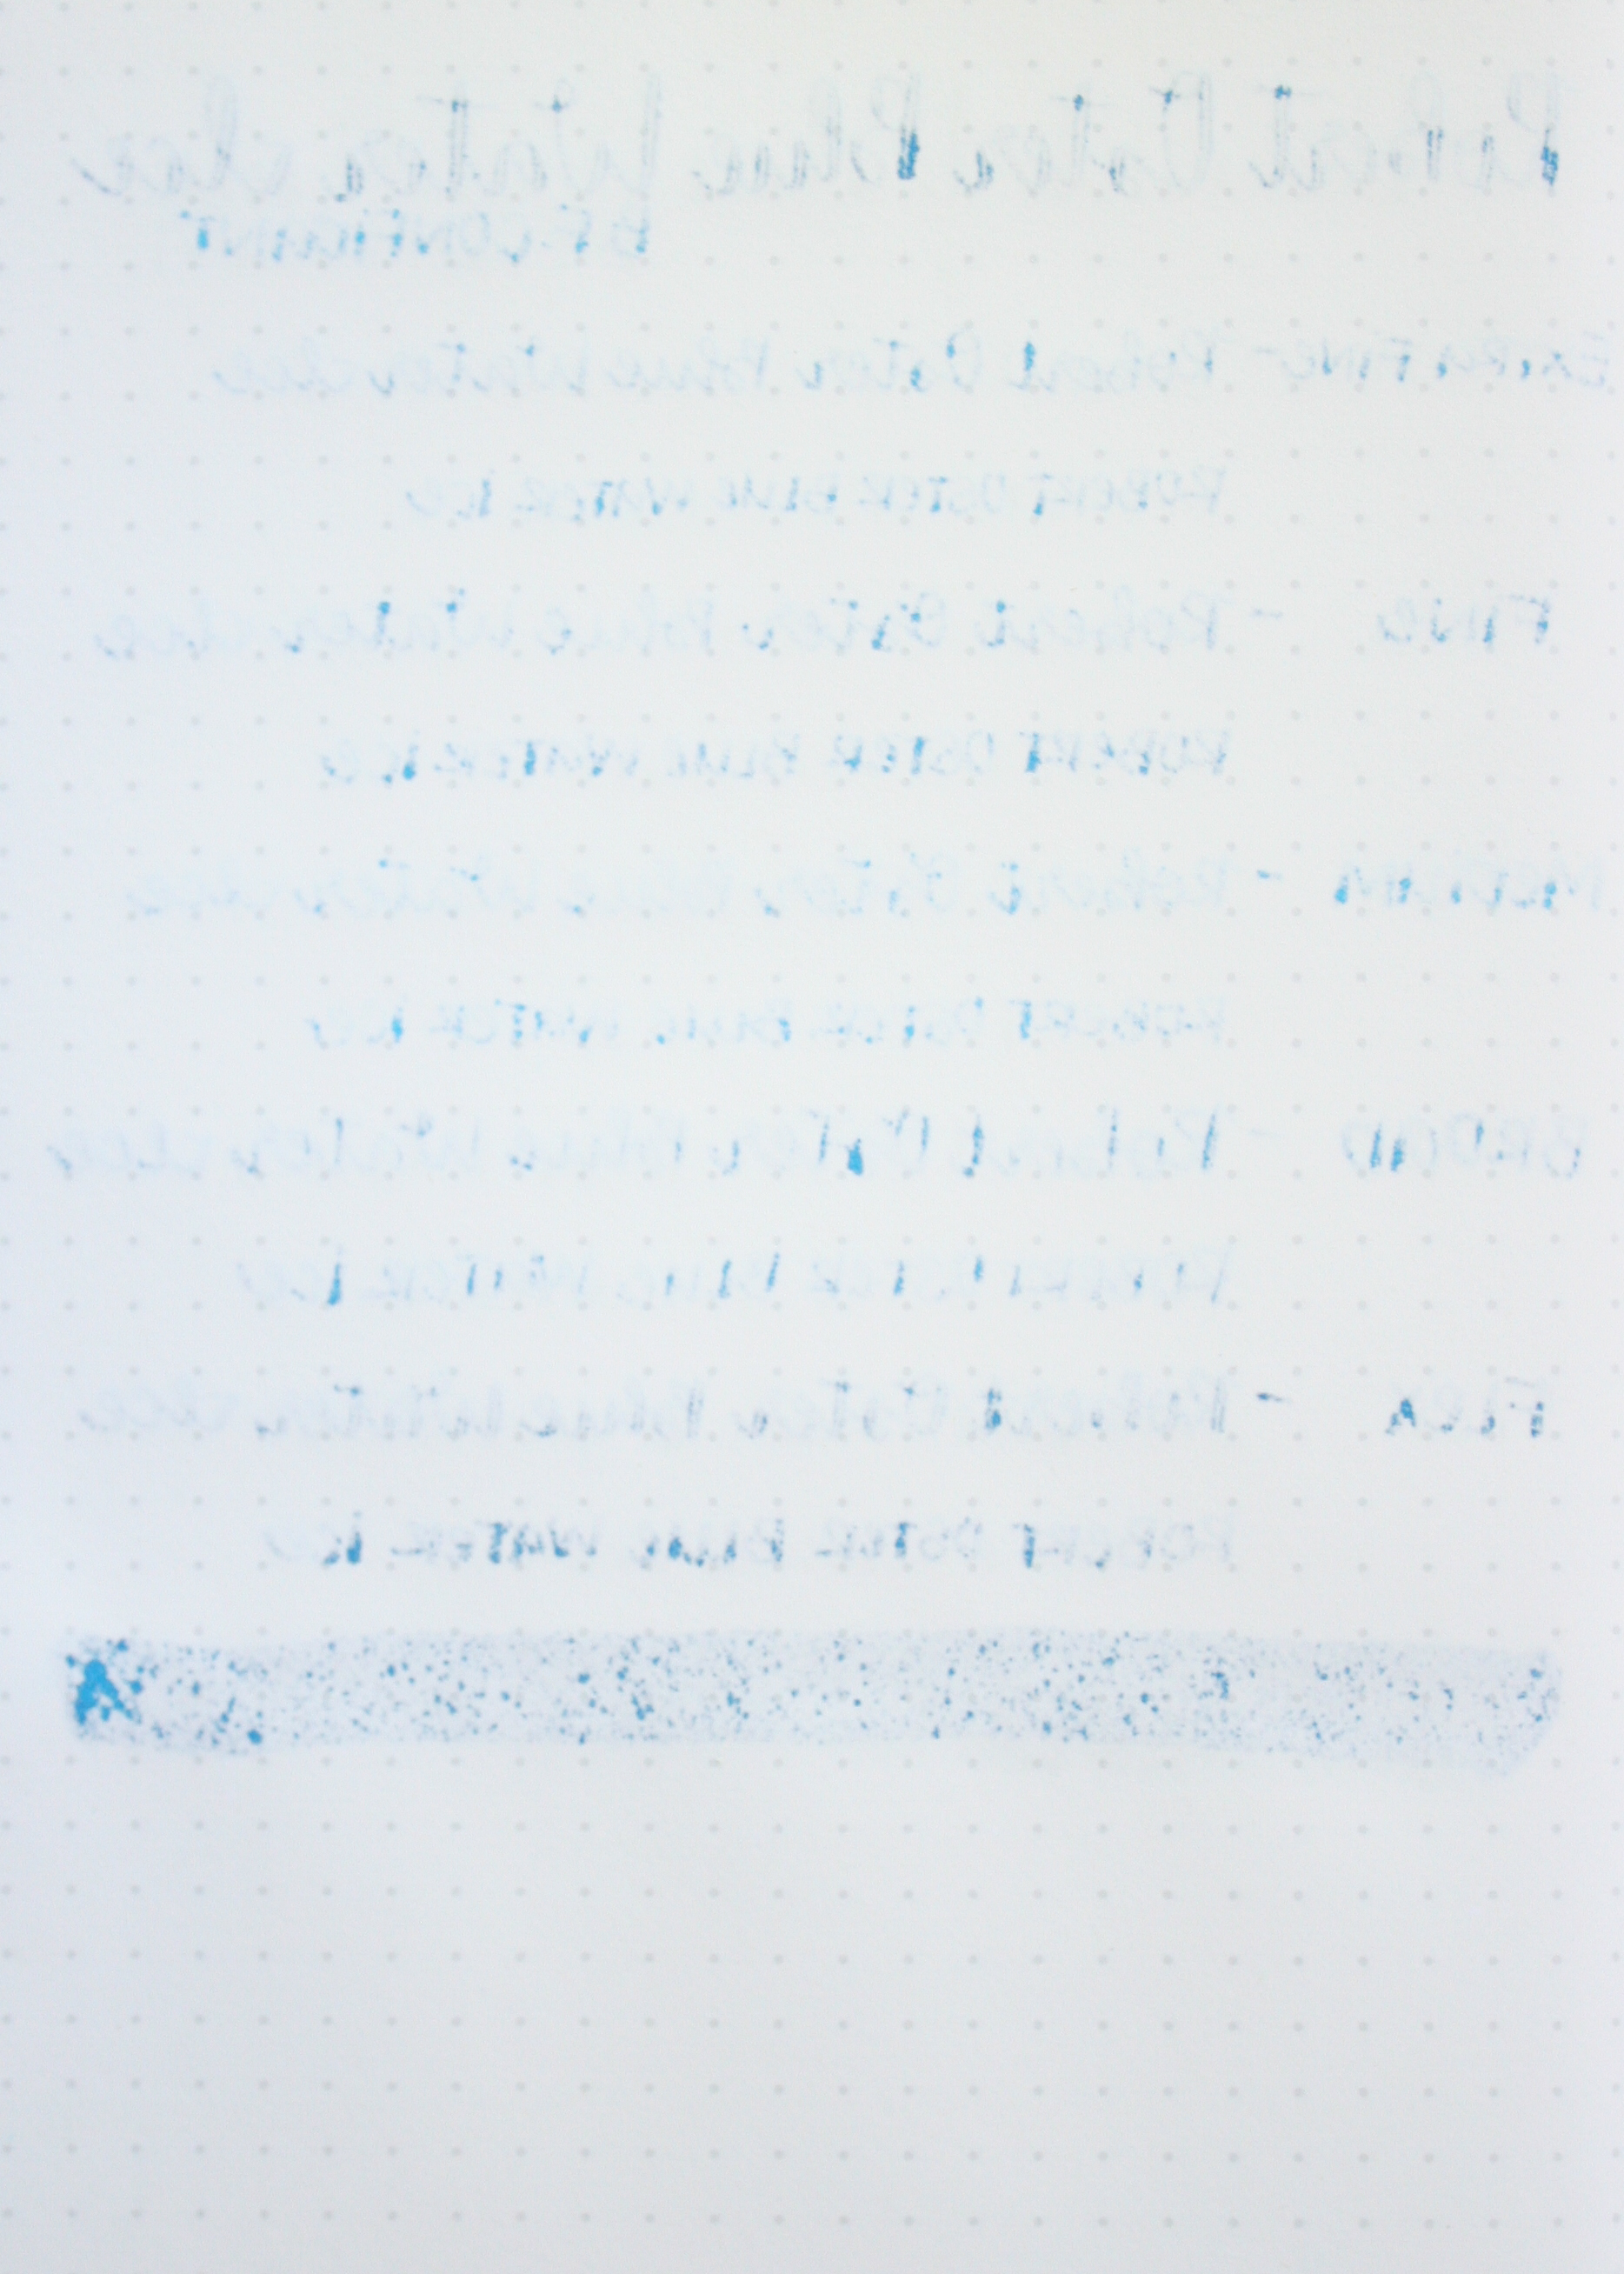 Robert Oster Blue Water Ice
EXTRA FINE - Robert Oster Blue Water Ice
ROBERT OSTER BLUE WATER ICE
FINE - Robert Oster Blue Water Ice
ROBERT OSTER BLUE WATER ICE
MEDIUM - Robert Oster Blue Water Ice
ROBERT OSTER BLUE WATER ICE
BROAD - Robert Oster Blue Water Ice
ROBERT OSTER BLUE WATER ICE
FLEX - Robert Oster Blue Water Ice
ROBERT OSTER BLUE WATER ICE